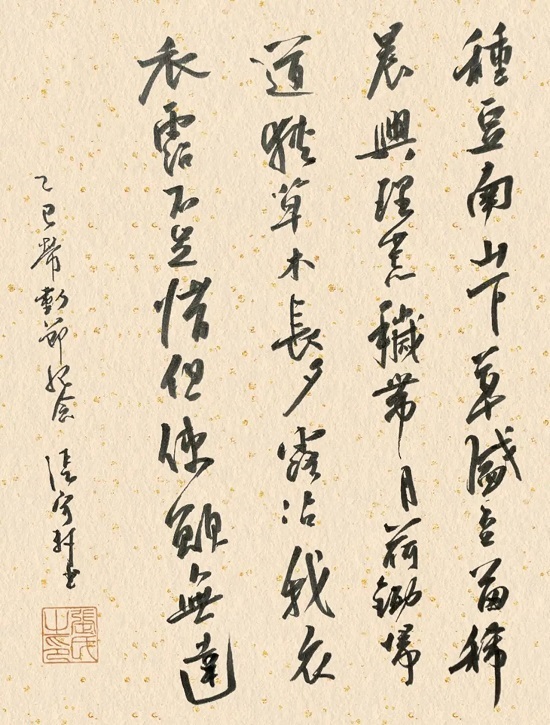 種豆南山下草盛豆苗稀
晨興理荒穢帶月荷鋤歸
道狹草木長夕露沾我衣
衣霑不足惜但使願無違
乙巳勞動節紀念 張書
張氏之印